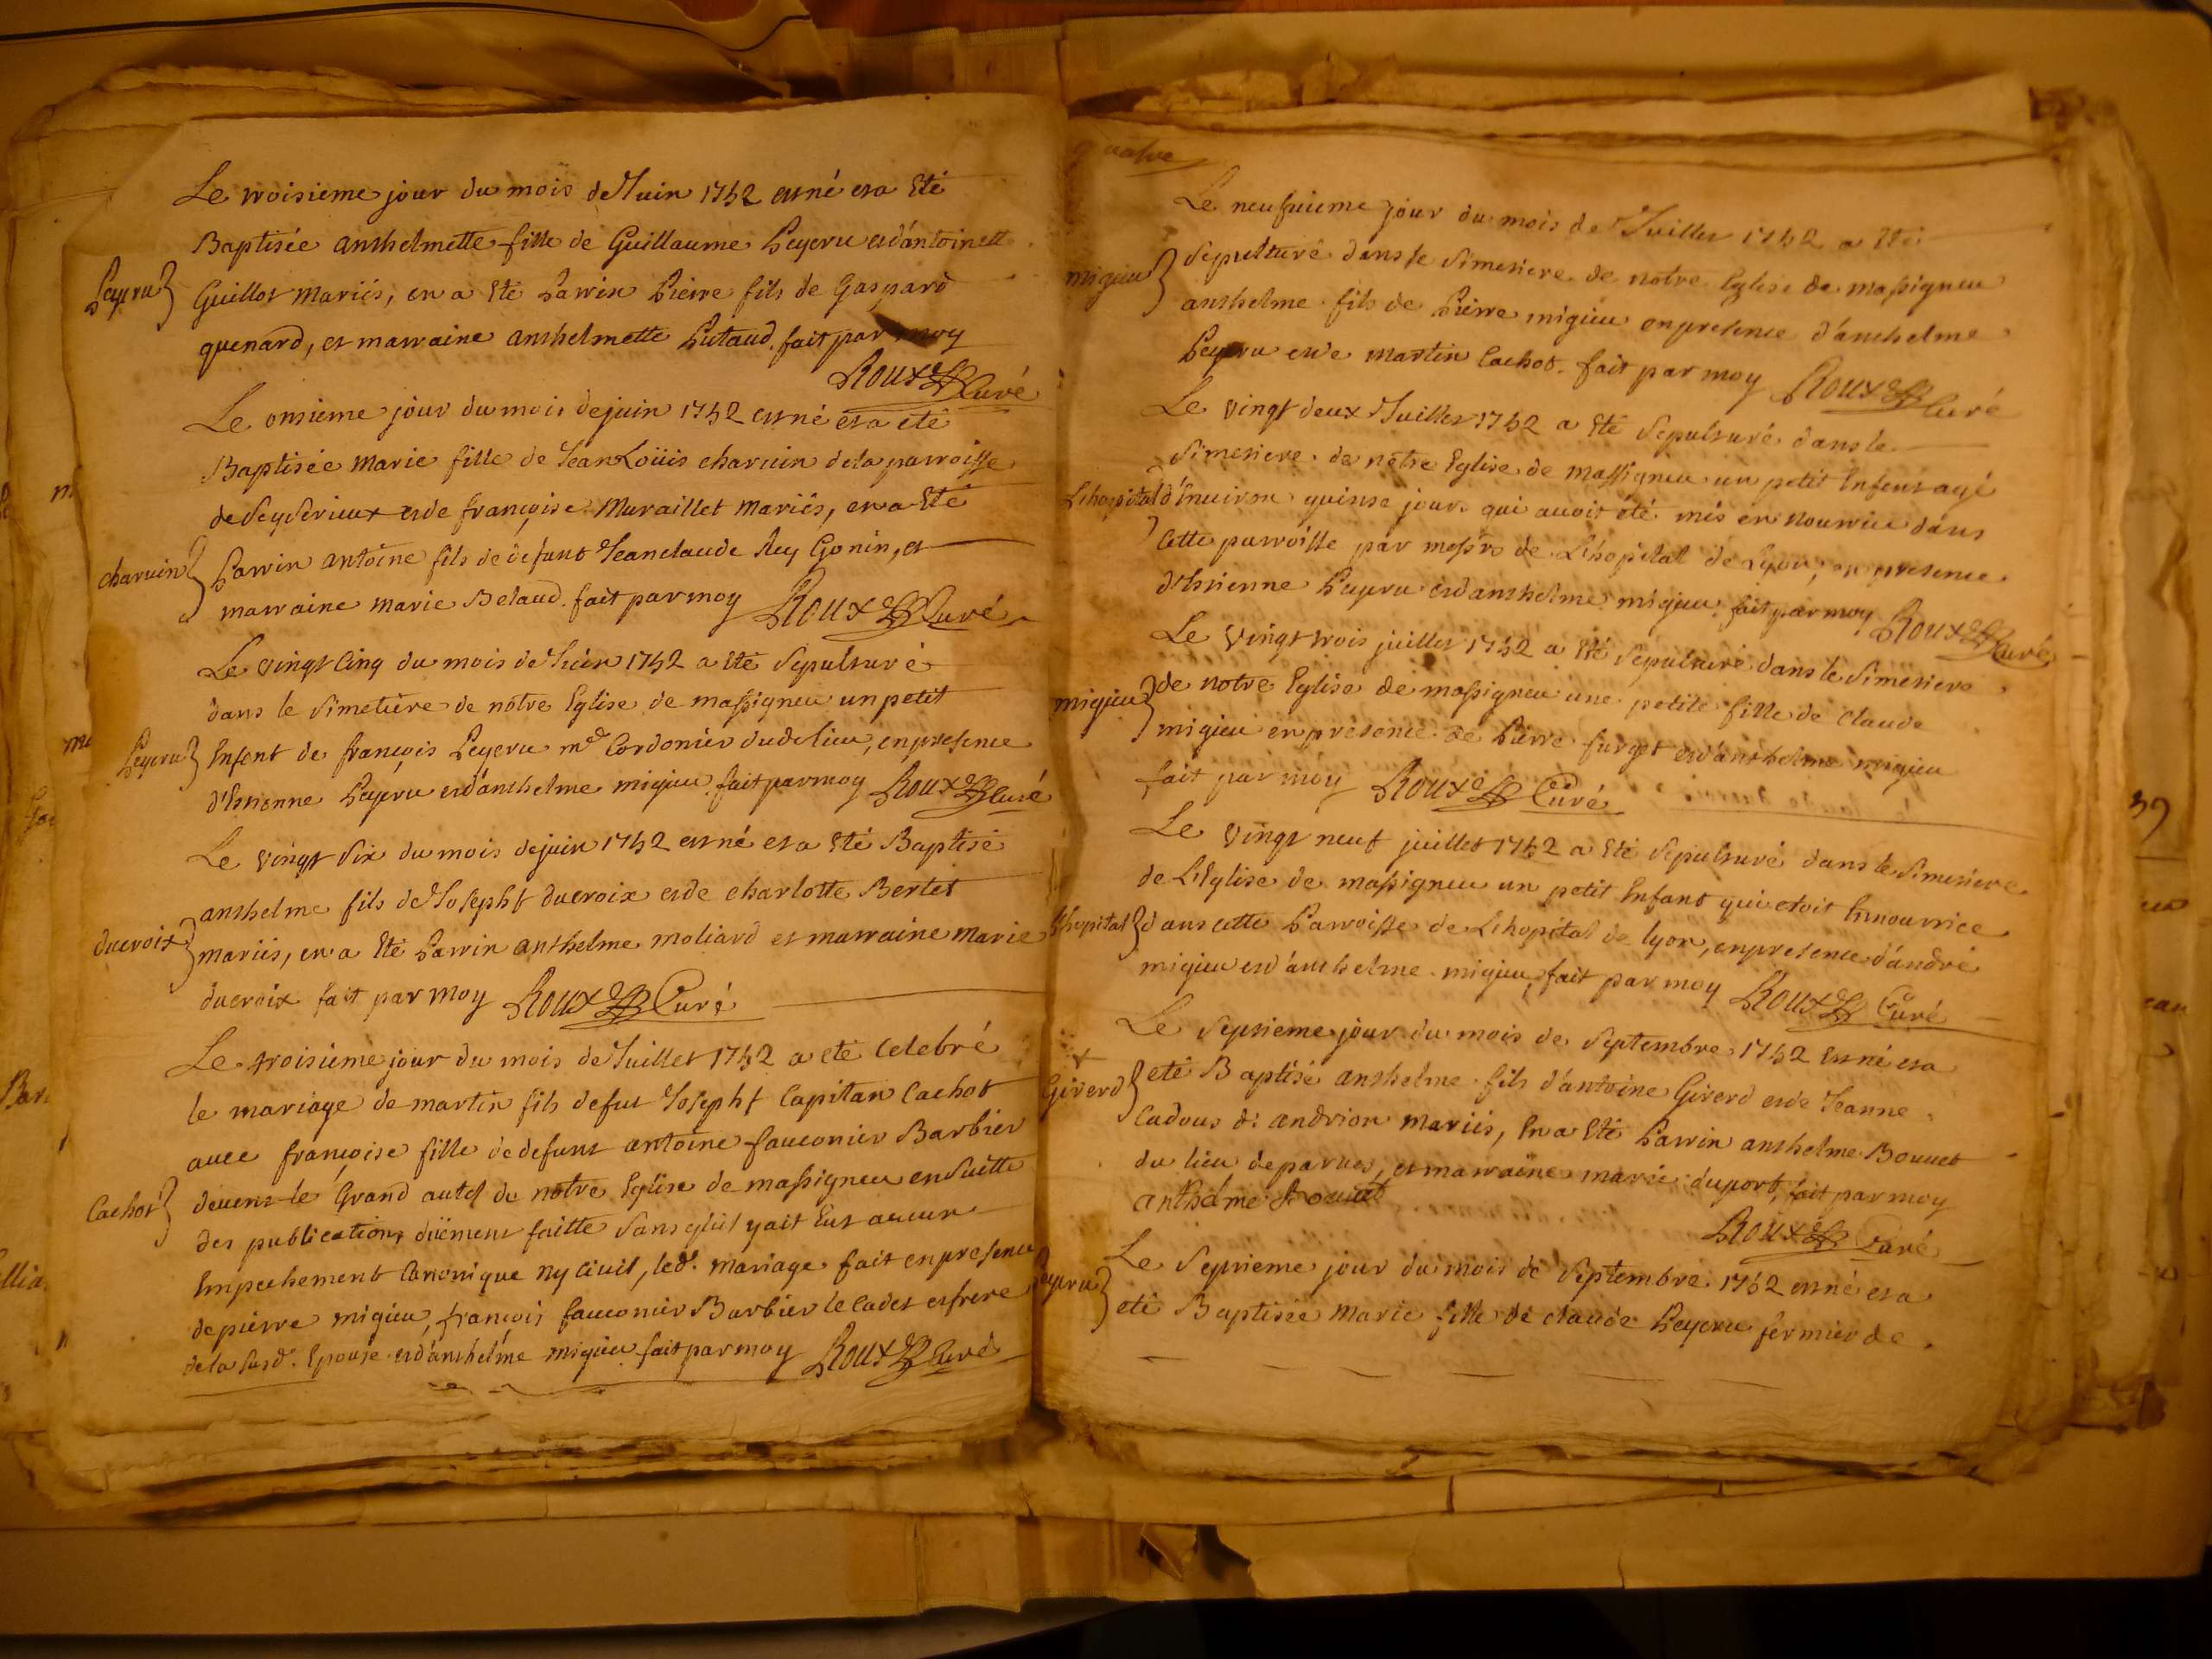 Le troisieme jour du mois de Juin 1752 est né et a Eté
Baptisée anthelmette fille de Guillaume Peyeru et d'antoinette
Peyeru
Guillot mariés, en a Eté Parrin Pierre fils de Gaspard
quenard, et marraine anthelmette Putaud. fait par moy
Roux Curé
Le onsieme jour du mois de juin 1752 est né et a eté
Baptisée marie fille de Jean Loüis charvin de la parroisse
de Seyserieux et de françoise Muraillet mariés, en a Eté
charvin
Parrin antoine fils de defunt Jeanclaude Rey Gonin, et
marraine marie Belaud. fait par moy Roux Curé
Le vingt Cinq du mois de Juin 1752 a Eté Sepulturé
dans le Simetiere de nôtre Eglise de massigneu un petit
Peyeru
Enfent de françois Peyeru md Cordonier dude lieu, en presence
d'Etienne Peyeru et d'anthelme migieu. fait par moy Roux Curé
Le vingt Six du mois de juin 1752 est né et a Eté Baptisé
anthelme fils de Josepht ducroix et de charlotte Bertet
ducroix
mariés, en a Eté Parrin anthelme moliard et marraine marie
ducroix fait par moy Roux Curé
Le troisieme jour du mois de Juillet 1752 a eté Celebré
le mariage de martin fils de fut Josepht Capitan Cachot
avec françoise fille de defunt antoine fauconier Barbier
Cachot
devent le Grand autel de nôtre Eglise de massigneu en Suitte
des publications düement faitte Sans qüil y ait Eut aucun
Empechement Canonique ny Civil, led. mariage fait en presence
de pierre migieu, françois fauconier Barbier le Cadet et frere
de la susd. Epouse et d'anthelme migieu. fait par moy Roux Curé
quatre
Le neufvieme jour du mois de Juillet 1752 a Eté
migieu
Sepulturé dans le Simetiere de notre Eglise de massigneu
anthelme fils de Pierre migieu en presence d'anthelme
Peyeru et de martin Cachot. fait par moy Roux Curé
Le vingt deux Juillet 1752 a Eté Sepulturé dans le
Simetiere de nôtre Eglise de massigneu un petit Enfent agé
Lhopital
d'Enuiron quinse jours qui auoit été mis en nourrice dans
Cette parroisse par messrs de L'hopital de Lyon, en presence
d'Etienne Peyeru et d'anthelme migieu. fait par moy Roux Curé
Le vingt trois juillet 1752 a Eté Sepulturé dans le Simetiere
migieu
de notre Eglise de massigneu une petite fille de Claude
migieu en presence de Pierre furget et d'anthelme migieu
fait par moy Roux Curé
Le vingt neuf juillet 1752 a Eté Sepulturé dans le Simetiere
de L'Eglise de massigneu un petit Enfant qui etoit En nourrice
Lhopital
dans cette Parroisse de L'hopital de lyon, en presence d'andré
migieu et d'anthelme migieu, fait par moy Roux Curé
Le Septieme jour du mois de Septembre 1752 Est né et a
Giverd
eté Baptisé anthelme fils d'antoine Giverd et de Jeanne
Cadous di andrion mariés, En a Eté Parrin anthelme Bouuet
du lieu de parues, et marraine marie duport, fait par moy
anthelme Bouuet
Roux Curé
Le Septieme jour du mois de Septembre 1752 est né et a
Peyeru
eté Baptisée Marie fille de claude Peyeru fermier de